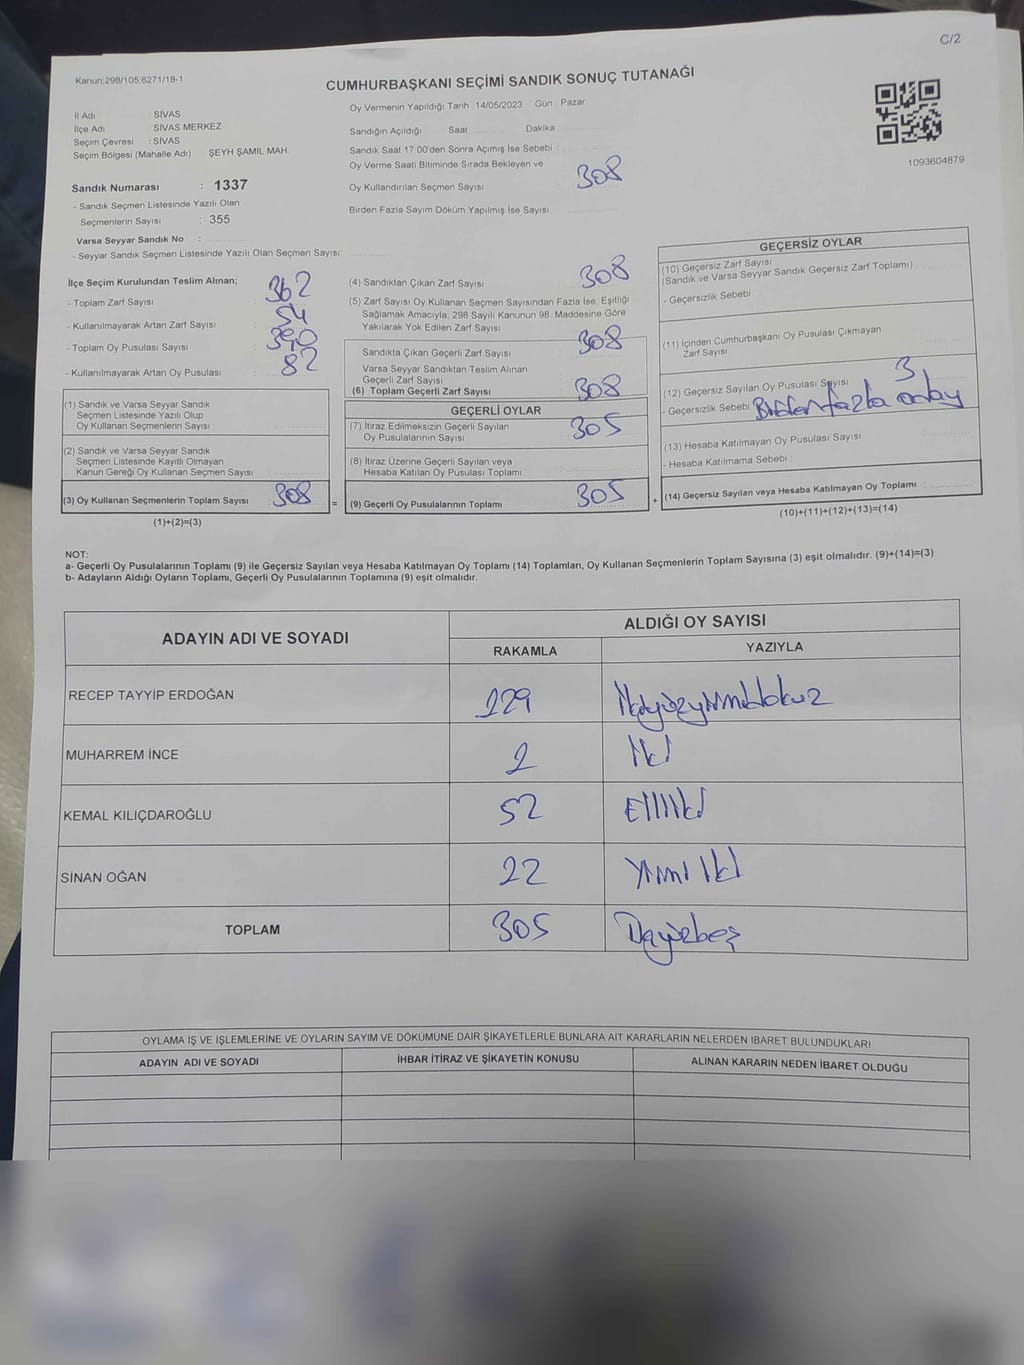 C/2
Kanun:298/105.6271/18-1
CUMHURBAŞKANI SEÇİMİ SANDIK SONUÇ TUTANAĞI
İl Adı : SİVAS
İlçe Adı : SİVAS MERKEZ
Seçim Çevresi : SİVAS
Seçim Bölgesi (Mahalle Adı) : ŞEYH ŞAMİL MAH.
Sandık Numarası : 1337
- Sandık Seçmen Listesinde Yazılı Olan
Seçmenlerin Sayısı : 355
Varsa Seyyar Sandık No :
- Seyyar Sandık Seçmen Listesinde Yazılı Olan Seçmen Sayısı:
Oy Vermenin Yapıldığı Tarih : 14/05/2023 Gün : Pazar
Sandığın Açıldığı Saat Dakika
Sandık Saat 17:00'den Sonra Açımış İse Sebebi :
Oy Verme Saati Bitiminde Sırada Bekleyen ve
Oy Kullandırılan Seçmen Sayısı 308
Birden Fazla Sayım Döküm Yapılmış İse Sayısı
1093604879
İlçe Seçim Kurulundan Teslim Alınan;
- Toplam Zarf Sayısı : 362
- Kullanılmayarak Artan Zarf Sayısı : 54
- Toplam Oy Pusulası Sayısı : 390
- Kullanılmayarak Artan Oy Pusulası : 82
(1) Sandık ve Varsa Seyyar Sandık
Seçmen Listesinde Yazılı Olup
Oy Kullanan Seçmenlerin Sayısı
(2) Sandık ve Varsa Seyyar Sandık
Seçmen Listesinde Kayıtlı Olmayan
Kanun Gereği Oy Kullanan Seçmen Sayısı
(3) Oy Kullanan Seçmenlerin Toplam Sayısı : 308 =
(1)+(2)=(3)
(4) Sandıktan Çıkan Zarf Sayısı 308
(5) Zarf Sayısı Oy Kullanan Seçmen Sayısından Fazla İse, Eşitliği
Sağlamak Amacıyla, 298 Sayılı Kanunun 98. Maddesine Göre
Yakılarak Yok Edilen Zarf Sayısı
Sandıkta Çıkan Geçerli Zarf Sayısı 308
Varsa Seyyar Sandıktan Teslim Alınan
Geçerli Zarf Sayısı
(6) Toplam Geçerli Zarf Sayısı 308
GEÇERLİ OYLAR
(7) İtiraz Edilmeksizin Geçerli Sayılan
Oy Pusulalarının Sayısı 305
(8) İtiraz Üzerine Geçerli Sayılan veya
Hesaba Katılan Oy Pusulası Toplamı
(9) Geçerli Oy Pusulalarının Toplamı 305 +
GEÇERSİZ OYLAR
(10) Geçersiz Zarf Sayısı
(Sandık ve Varsa Seyyar Sandık Geçersiz Zarf Toplamı)
- Geçersizlik Sebebi :
(11) İçinden Cumhurbaşkanı Oy Pusulası Çıkmayan
Zarf Sayısı
(12) Geçersiz Sayılan Oy Pusulası Sayısı 3
- Geçersizlik Sebebi Birden fazla onay
(13) Hesaba Katılmayan Oy Pusulası Sayısı
- Hesaba Katılmama Sebebi :
(14) Geçersiz Sayılan veya Hesaba Katılmayan Oy Toplamı :
(10)+(11)+(12)+(13)=(14)
NOT:
a- Geçerli Oy Pusulalarının Toplamı (9) ile Geçersiz Sayılan veya Hesaba Katılmayan Oy Toplamı (14) Toplamları, Oy Kullanan Seçmenlerin Toplam Sayısına (3) eşit olmalıdır. (9)+(14)=(3)
b- Adayların Aldığı Oyların Toplamı, Geçerli Oy Pusulalarının Toplamına (9) eşit olmalıdır.
ADAYIN ADI VE SOYADI ALDIĞI OY SAYISI
RAKAMLA YAZIYLA
RECEP TAYYİP ERDOĞAN 229 İkiyüzyirmidokuz
MUHARREM İNCE 2 İki
KEMAL KILIÇDAROĞLU 52 Elliiki
SİNAN OĞAN 22 Yirmi İki
TOPLAM 305 Üçyüzbeş
OYLAMA İŞ VE İŞLEMLERİNE VE OYLARIN SAYIM VE DÖKÜMÜNE DAİR ŞİKAYETLERLE BUNLARA AİT KARARLARIN NELERDEN İBARET BULUNDUKLARI
ADAYIN ADI VE SOYADI İHBAR İTİRAZ VE ŞİKAYETİN KONUSU ALINAN KARARIN NEDEN İBARET OLDUĞU